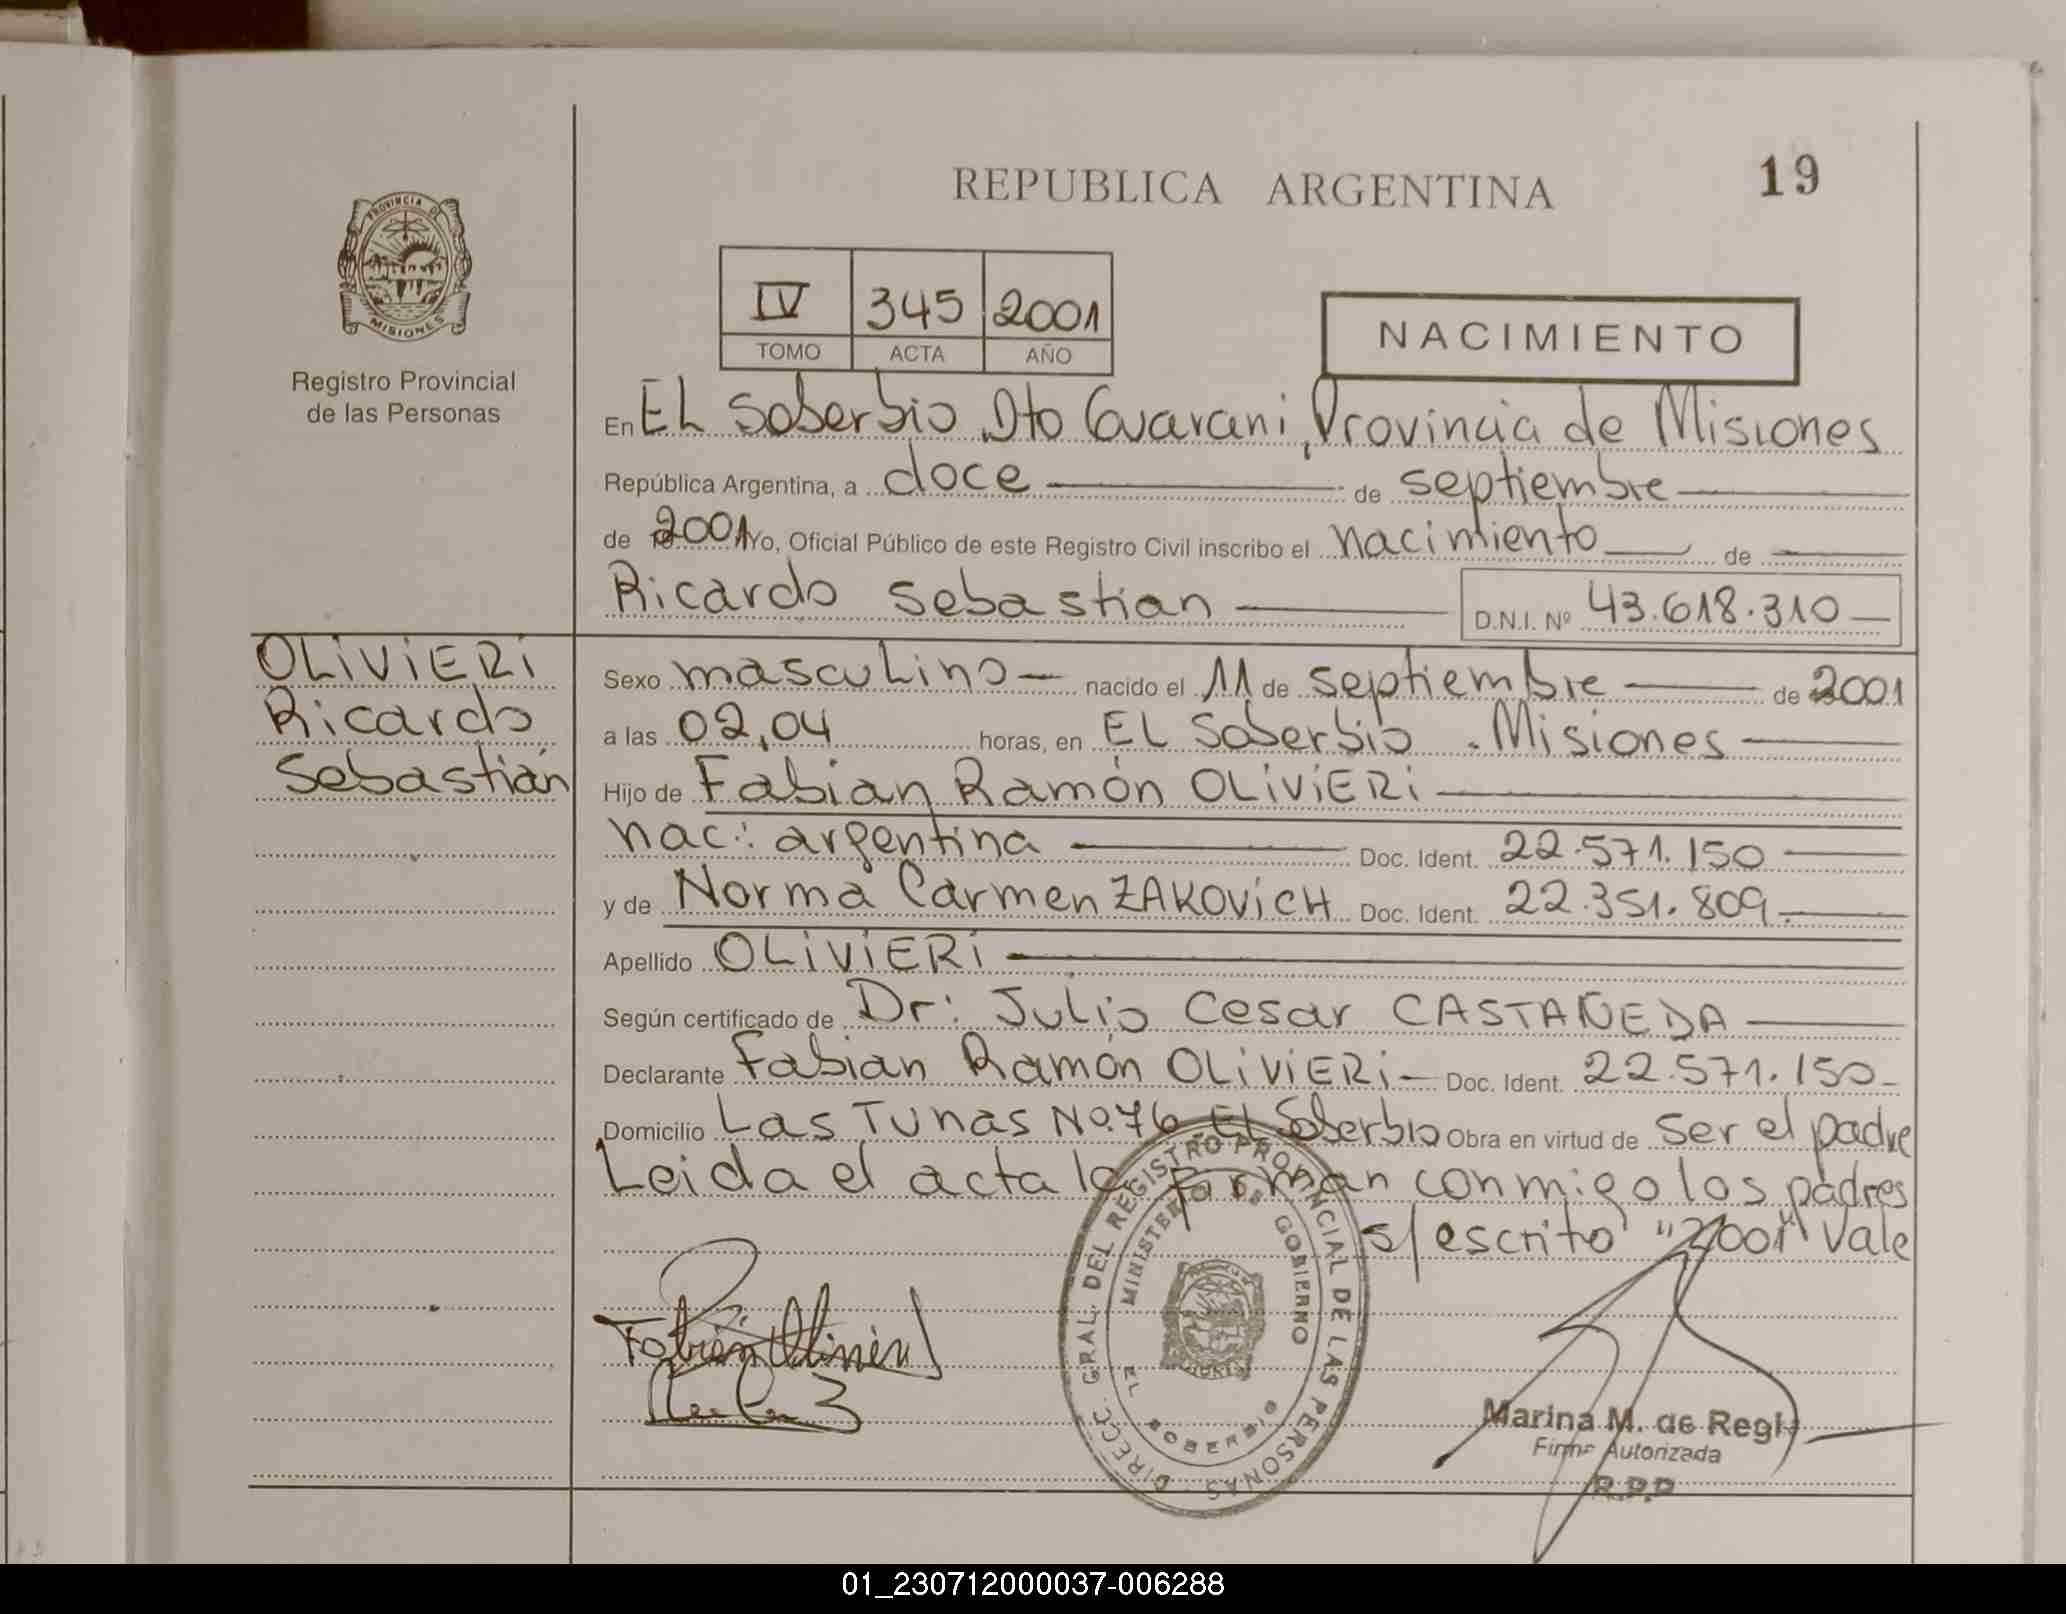 REPUBLICA ARGENTINA
19
PROVINCIA DE
MISIONES
Registro Provincial
de las Personas
IV 345 2001
TOMO ACTA AÑO
NACIMIENTO
En EL Soberbio Dto Guarani, Provincia de Misiones
República Argentina, a doce de septiembre
de 2001 Yo, Oficial Público de este Registro Civil inscribo el nacimiento de
Ricardo Sebastian D.N.I. Nº 43.618.310
OLIVIERI
Ricardo
Sebastián
Sexo masculino nacido el 11 de septiembre de 2001
a las 02,04 horas, en EL Soberbio . Misiones
Hijo de Fabian Ramón OLIVIERI
nac: argentina Doc. Ident. 22.571.150
y de Norma Carmen ZAKOVICH Doc. Ident. 22.351.809.
Apellido OLIVIERI
Según certificado de Dr: Julio Cesar CASTAÑEDA
Declarante Fabian Ramón OLIVIERI Doc. Ident. 22.571.150
Domicilio Las Tunas No.76 EL Soberbio Obra en virtud de ser el padre
Leida el acta la firman conmigo los padres
s/escrito "2001" Vale
DIRECC. GRAL. DEL REGISTRO PROVINCIAL DE LAS PERSONAS
MINISTERIO DE GOBIERNO
EL SOBERBIO
Fabian Olivieri
Marina M. de Regi
Firma Autorizada
R.P.P
01_230712000037-006288